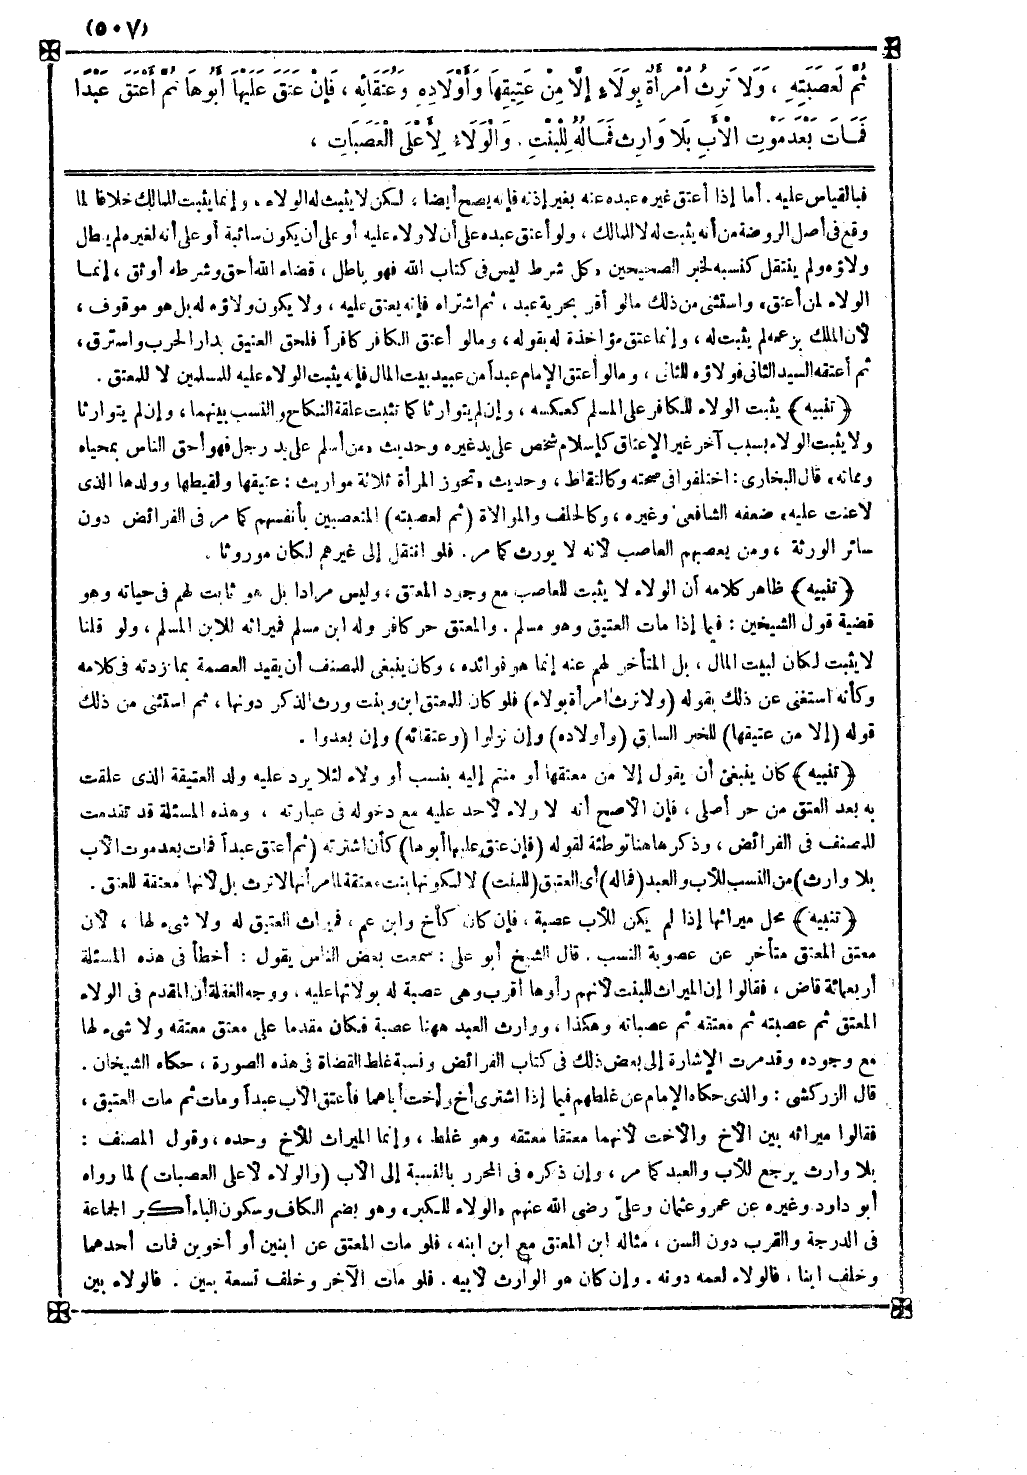 (٥٠٧)
ثُمَّ لِعَصَبَتِهِ ، وَلَا تَرِثُ امْرَأَةٌ بِوَلَاءٍ إِلَّا مِنْ عَتِيقِهَا وَأَوْلَادِهِ وَعُتَقَائِهِ ، فَإِنْ عَتَقَ عَلَيْهَا أَبُوهَا ثُمَّ أَعْتَقَ عَبْدًا
فَمَاتَ بَعْدَ مَوْتِ الْأَبِ بِلَا وَارِثٍ فَمَالُهُ لِلْبِنْتِ . وَالْوَلَاءُ لِأَعْلَى الْعَصَبَاتِ ،
فبالقياس عليه . أما إذا أعتق غيره عبده عنه بغير إذنه فإنه يصح أيضا ، لكن لا يثبت له الولاء ، وإنما يثبت للمالك خلافا لما
وقع فى أصل الروضة من أنه يثبت له لا للمالك ، ولو أعتق عبده على أن لا ولاء عليه أو على أن يكون سائبة أو على أنه لغيره لم يبطل
ولاؤه ولم ينتقل كنسبه لخبر الصحيحين «كل شرط ليس فى كتاب الله فهو باطل ، قضاء الله أحق وشرطه أوثق ، إنما
الولاء لمن أعتق» واستثنى من ذلك ما لو أقر بحرية عبد ، ثم اشتراه فإنه يعتق عليه ، ولا يكون ولاؤه له بل هو موقوف ،
لأن الملك بزعمه لم يثبت له ، وإنما عتق مؤاخذة له بقوله ، وما لو أعتق الكافر كافرا فلحق العتيق بدار الحرب واسترق ،
ثم أعتقه السيد الثانى فولاؤه للثانى ، وما لو أعتق الإمام عبدا من عبيد بيت المال فإنه يثبت الولاء عليه للمسلمين لا للمعتق .
﴿ تنبيه ﴾ يثبت الولاء للكافر على المسلم كعكسه ، وإن لم يتوارثا كما تثبت علقة النكاح والنسب بينهما ، وإن لم يتوارثا
ولا يثبت الولاء بسبب آخر غير الإعتاق كإسلام شخص على يد غيره وحديث «من أسلم على يد رجل فهو أحق الناس بمحياه
ومماته» قال البخارى : اختلفوا فى صحته وكالتقاط ، وحديث «تحوز المرأة ثلاثة مواريث : عتيقها ولقيطها وولدها الذى
لاعنت عليه» ضعفه الشافعى وغيره ، وكالحلف والموالاة (ثم لعصبته) المتعصبين بأنفسهم كما مر فى الفرائض دون
سائر الورثة ، ومن يعصبهم العاصب لأنه لا يورث كما مر . فلو انتقل إلى غيرهم لكان موروثا .
﴿ تنبيه ﴾ ظاهر كلامه أن الولاء لا يثبت للعاصب مع وجود المعتق ، وليس مرادا بل هو ثابت لهم فى حياته وهو
قضية قول الشيخين : فيما إذا مات العتيق وهو مسلم . والمعتق حر كافر وله ابن مسلم فميراثه للابن المسلم ، ولو قلنا
لا يثبت لكان لبيت المال ، بل المتأخر لهم عنه إنما هو فوائده ، وكان ينبغى للمصنف أن يقيد العصبة بما زدته فى كلامه
وكأنه استغنى عن ذلك بقوله (ولا ترث امرأة بولاء) فلو كان للمعتق ابن وبنت ورث الذكر دونها ، ثم استثنى من ذلك
قوله (إلا من عتيقها) للخبر السابق (وأولاده) وإن نزلوا (وعتقائه) وإن بعدوا .
﴿ تنبيه ﴾ كان ينبغى أن يقول إلا من معتقها أو منتم إليه بنسب أو ولاء لئلا يرد عليه ولد العتيقة الذى علقت
به بعد العتق من حر أصلى ، فإن الأصح أنه لا ولاء لأحد عليه مع دخوله فى عبارته ، وهذه المسئلة قد تقدمت
للمصنف فى الفرائض ، وذكرها هنا توطئة لقوله (فإن عتق عليها أبوها) كأن اشترته (ثم أعتق عبدا فمات بعد موت الأب
بلا وارث) من النسب للأب والعبد (فماله) أى العتيق (للبنت) لا لكونها بنت معتقه لما مر أنها لا ترث بل لأنها معتقة للمعتق .
﴿ تنبيه ﴾ محل ميراثها إذا لم يكن للأب عصبة ، فإن كان كأخ وابن عم ، فميراث العتيق له ولا شىء لها ، لأن
معتق المعتق متأخر عن عصوبة النسب . قال الشيخ أبو على : سمعت بعض الناس يقول : أخطأ فى هذه المسئلة
أربعمائة قاض ، فقالوا إن الميراث للبنت لأنهم رأوها أقرب وهى عصبة له بولائها عليه ، ووجه الغفلة أن المقدم فى الولاء
المعتق ثم عصبته ثم معتقه ثم عصباته وهكذا ، ووارث العبد ههنا عصبة فكان مقدما على معتق معتقه ولا شىء لها
مع وجوده وقد مرت الإشارة إلى بعض ذلك فى كتاب الفرائض ونسبة غلط القضاة فى هذه الصورة ، حكاه الشيخان .
قال الزركشى : والذى حكاه الإمام عن غلطهم فيما إذا اشترى أخ وأخت أباهما فأعتق الأب عبدا ومات ثم مات العتيق ،
فقالوا ميراثه بين الأخ والأخت لأنهما معتقا معتقه وهو غلط ، وإنما الميراث للأخ وحده ، وقول المصنف :
بلا وارث يرجع للأب والعبد كما مر ، وإن ذكره فى المحرر بالنسبة إلى الأب (والولاء لأعلى العصبات) لما رواه
أبو داود وغيره عن عمر وعثمان وعلىّ رضى الله عنهم «الولاء للكبر» وهو بضم الكاف وسكون الباء أكبر الجماعة
فى الدرجة والقرب دون السن ، مثاله ابن المعتق مع ابن ابنه ، فلو مات المعتق عن ابنين أو أخوين فمات أحدهما
وخلف ابنا ، فالولاء لعمه دونه . وإن كان هو الوارث لأبيه . فلو مات الآخر وخلف تسعة بنين . فالولاء بين